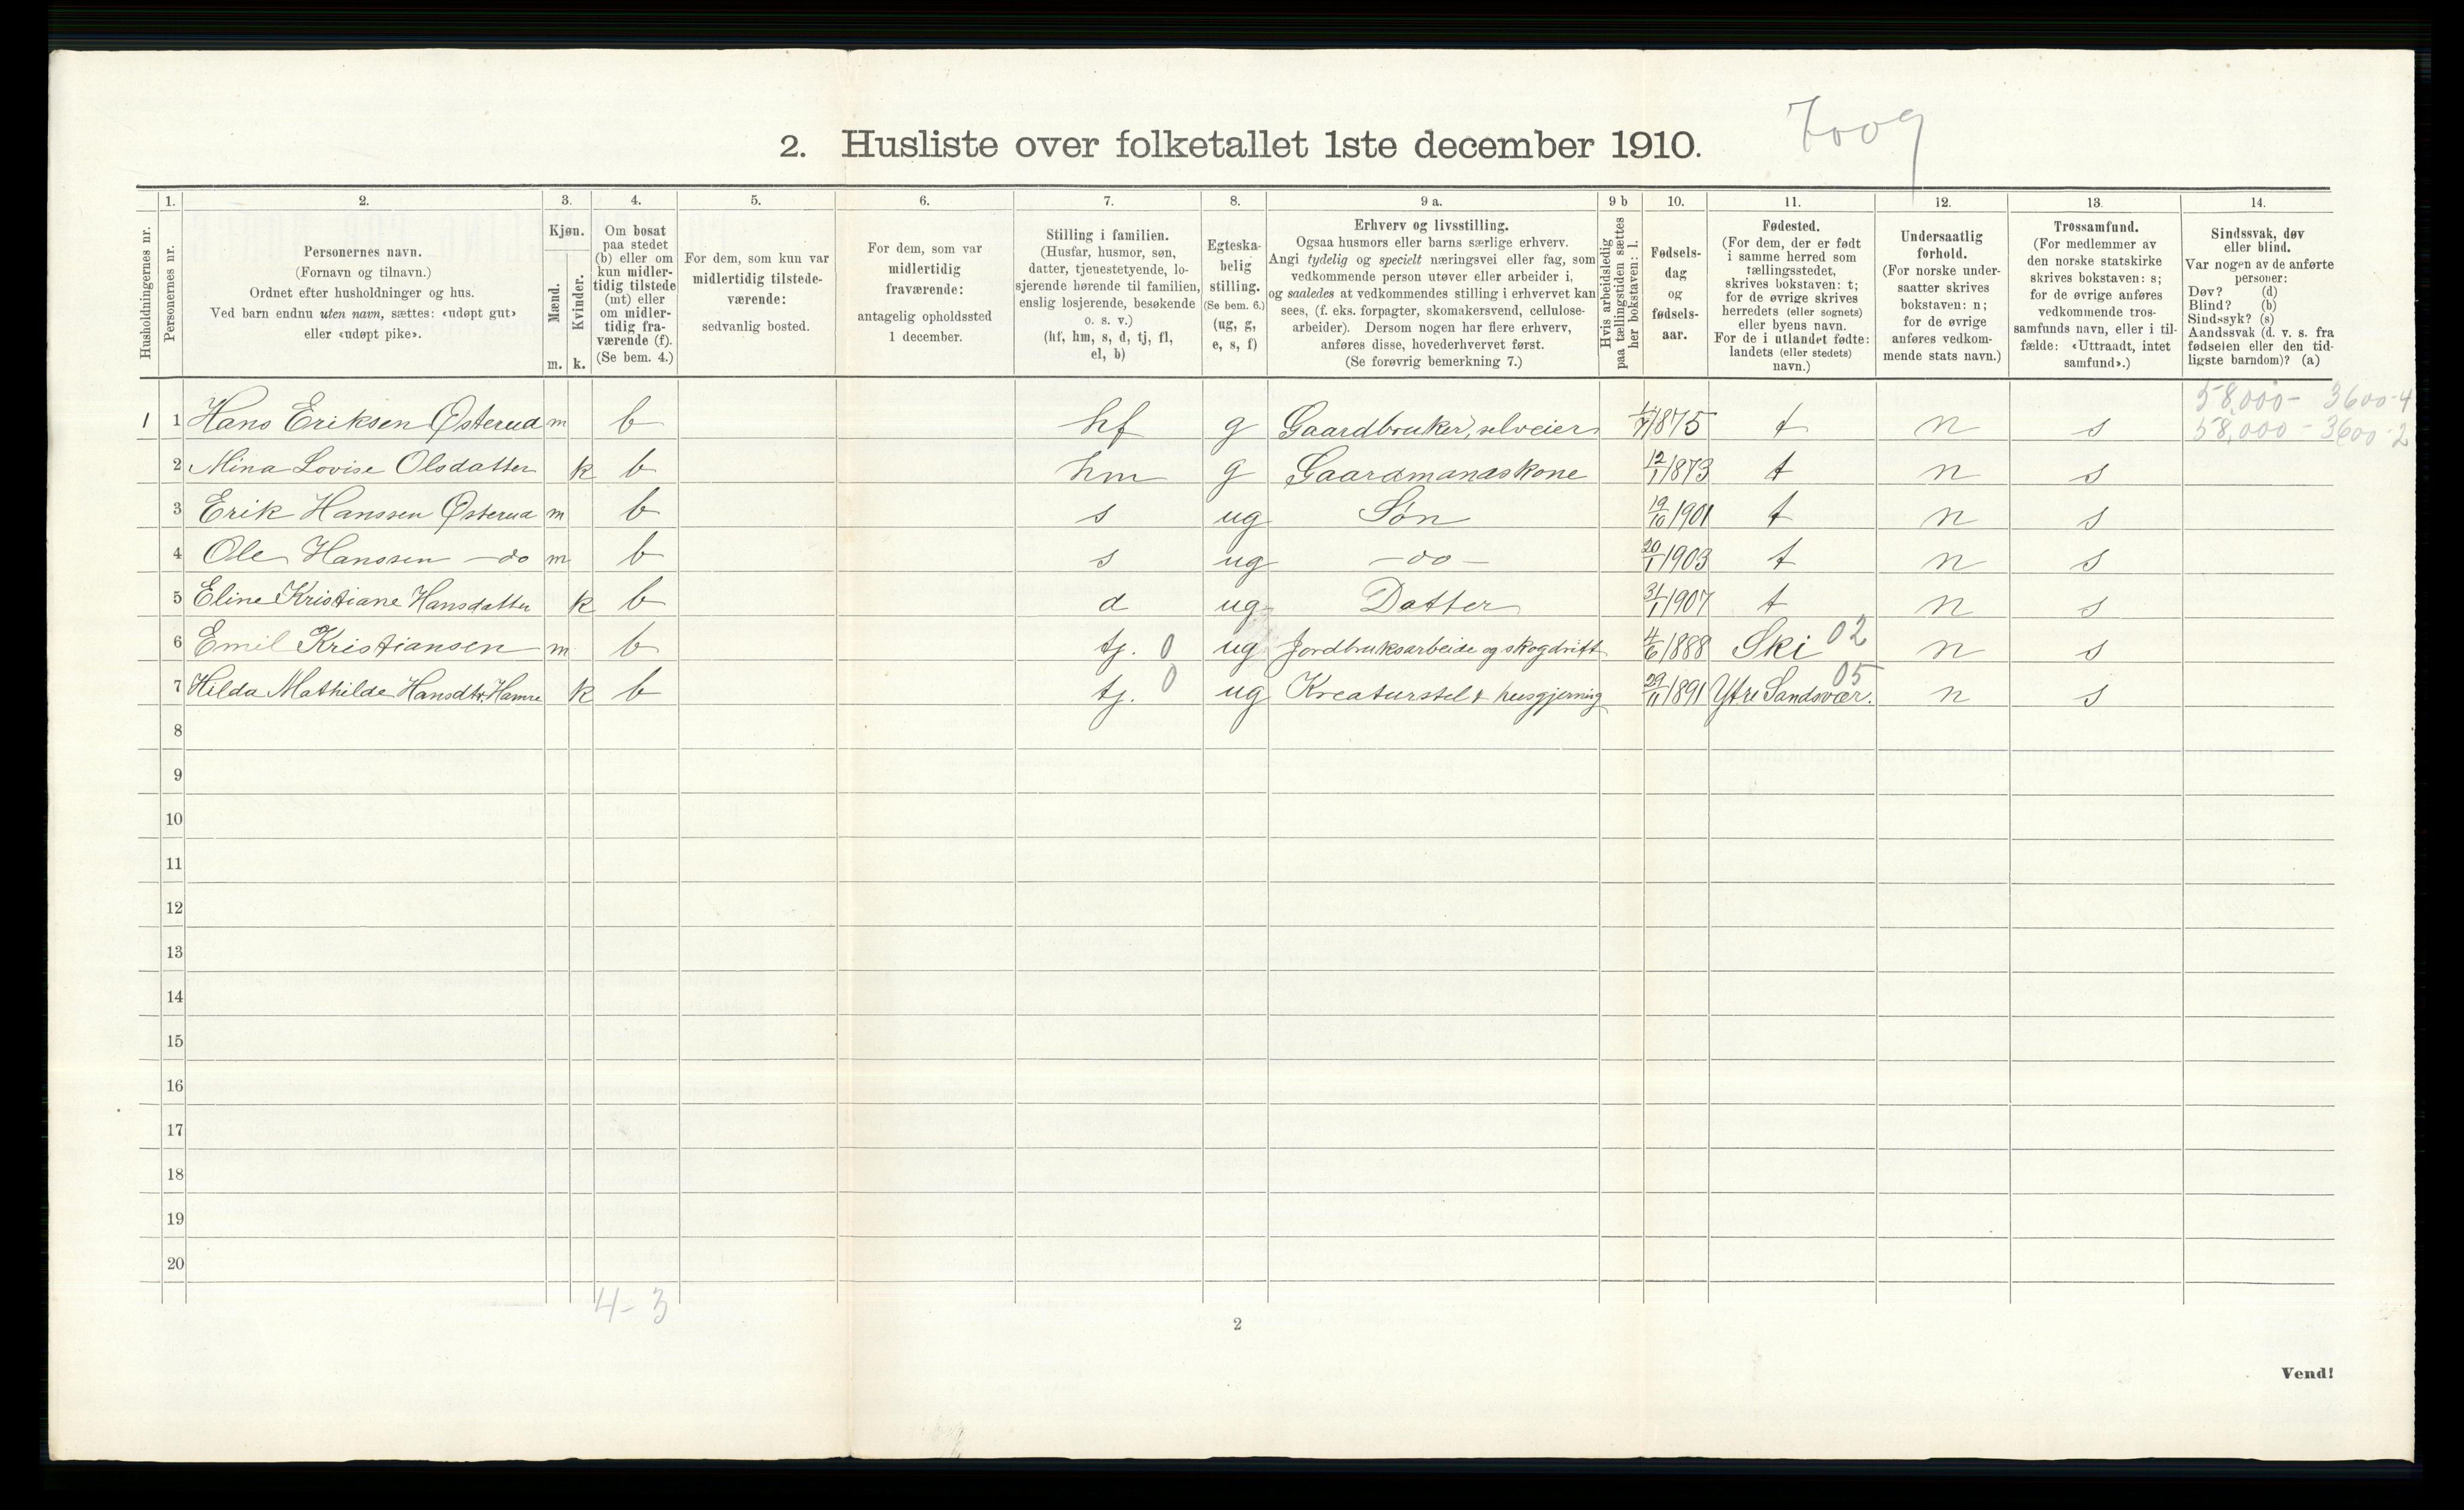 2. Husliste over folketallet 1ste december 1910.
7009
Husholdningernes nr.
1.
Personernes nr.
2.
Personernes navn.
(Fornavn og tilnavn.)
Ordnet efter husholdninger og hus.
Ved barn endnu uten navn, sættes: «udøpt gut»
eller «udøpt pike».
3.
Kjøn.
Mænd.
Kvinder.
m. k.
4.
Om bosat
paa stedet
(b) eller om
kun midler-
tidig tilstede
(mt) eller
om midler-
tidig fra-
værende (f).
(Se bem. 4.)
5.
For dem, som kun var
midlertidig tilstede-
værende:
sedvanlig bosted.
6.
For dem, som var
midlertidig
fraværende:
antagelig opholdssted
1 december.
7.
Stilling i familien.
(Husfar, husmor, søn,
datter, tjenestetyende, lo-
sjerende hørende til familien,
enslig losjerende, besøkende
o. s. v.)
(hf, hm, s, d, tj, fl,
el, b)
8.
Egteska-
belig
stilling.
(Se bem. 6.)
(ug, g,
e, s, f)
9 a.
Erhverv og livsstilling.
Ogsaa husmors eller barns særlige erhverv.
Angi tydelig og specielt næringsvei eller fag, som
vedkommende person utøver eller arbeider i,
og saaledes at vedkommendes stilling i erhvervet kan
sees, (f. eks. forpagter, skomakersvend, cellulose-
arbeider). Dersom nogen har flere erhverv,
anføres disse, hovederhvervet først.
(Se forøvrig bemerkning 7.)
9 b
Hvis arbeidsledig
paa tællingstiden sættes
her bokstaven: l.
10.
Fødsels-
dag
og
fødsels-
aar.
11.
Fødested.
(For dem, der er født
i samme herred som
tællingsstedet,
skrives bokstaven: t;
for de øvrige skrives
herredets (eller sognets)
eller byens navn.
For de i utlandet fødte:
landets (eller stedets)
navn.)
12.
Undersaatlig
forhold.
(For norske under-
saatter skrives
bokstaven: n;
for de øvrige
anføres vedkom-
mende stats navn.)
13.
Trossamfund.
(For medlemmer av
den norske statskirke
skrives bokstaven: s;
for de øvrige anføres
vedkommende tros-
samfunds navn, eller i til-
fælde: «Uttraadt, intet
samfund».)
14.
Sindssvak, døv
eller blind.
Var nogen av de anførte
personer:
Døv? (d)
Blind? (b)
Sindssyk? (s)
Aandssvak (d. v. s. fra
fødselen eller den tid-
ligste barndom)? (a)
58,000- 3600-4
1 1 Hans Eriksen Østerud m b hf g Gaardbruker, selveier 1875 t n s 58,000 - 3600-2
2 Mina Lovise Olsdatter k b hm g Gaardmandskone 12/1 1873 t n s
3 Erik Hanssen Østerud m b s ug Søn 19/10 1901 t n s
4 Ole Hanssen -do m b s ug -do- 20/1 1903 t n s
5 Eline Kristiane Hansdatter k b d ug Datter 31/1 1907 t n s
6 Emil Kristiansen m b tj. 0 ug Jordbruksarbeide og skogdrift 4/6 1888 Ski 02 n s
7 Hilda Mathilde Hansdtr. Hamre k b tj. 0 ug Kreaturstel & husgjerning 29/11 1891 Ytre Sandsvær. 05 n s
8
9
10
11
12
13
14
15
16
17
18
19
20
4-3
2
Vend!